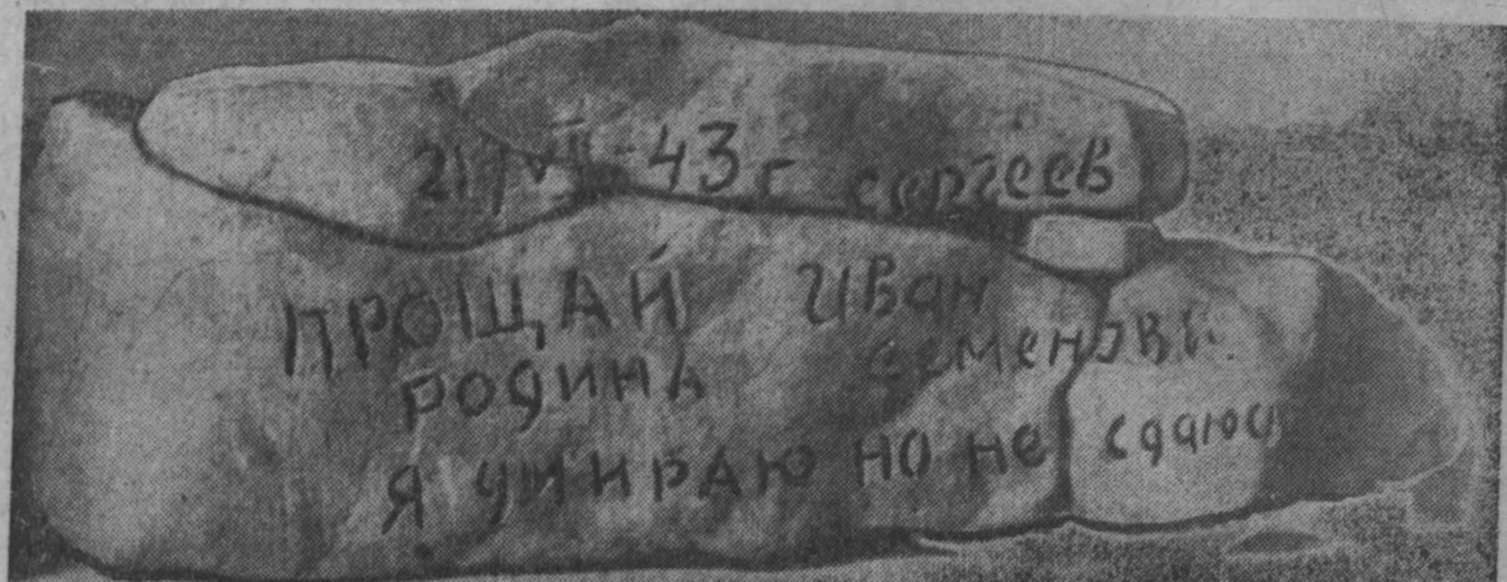 21/VI-43г сергеев
ПРОЩАЙ Иван
родина
я умираю но не сдаюсь